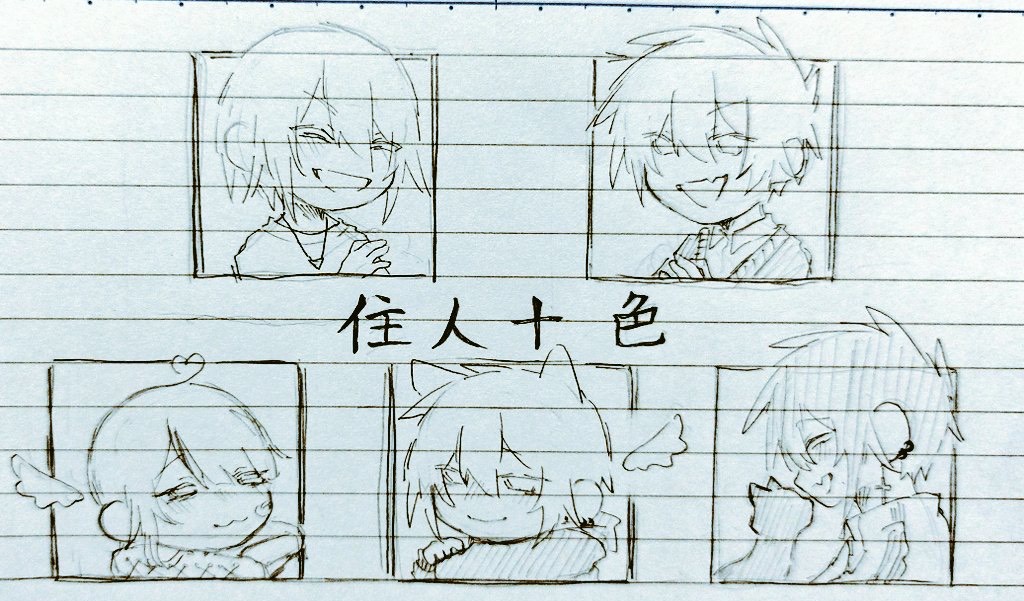 住人十色